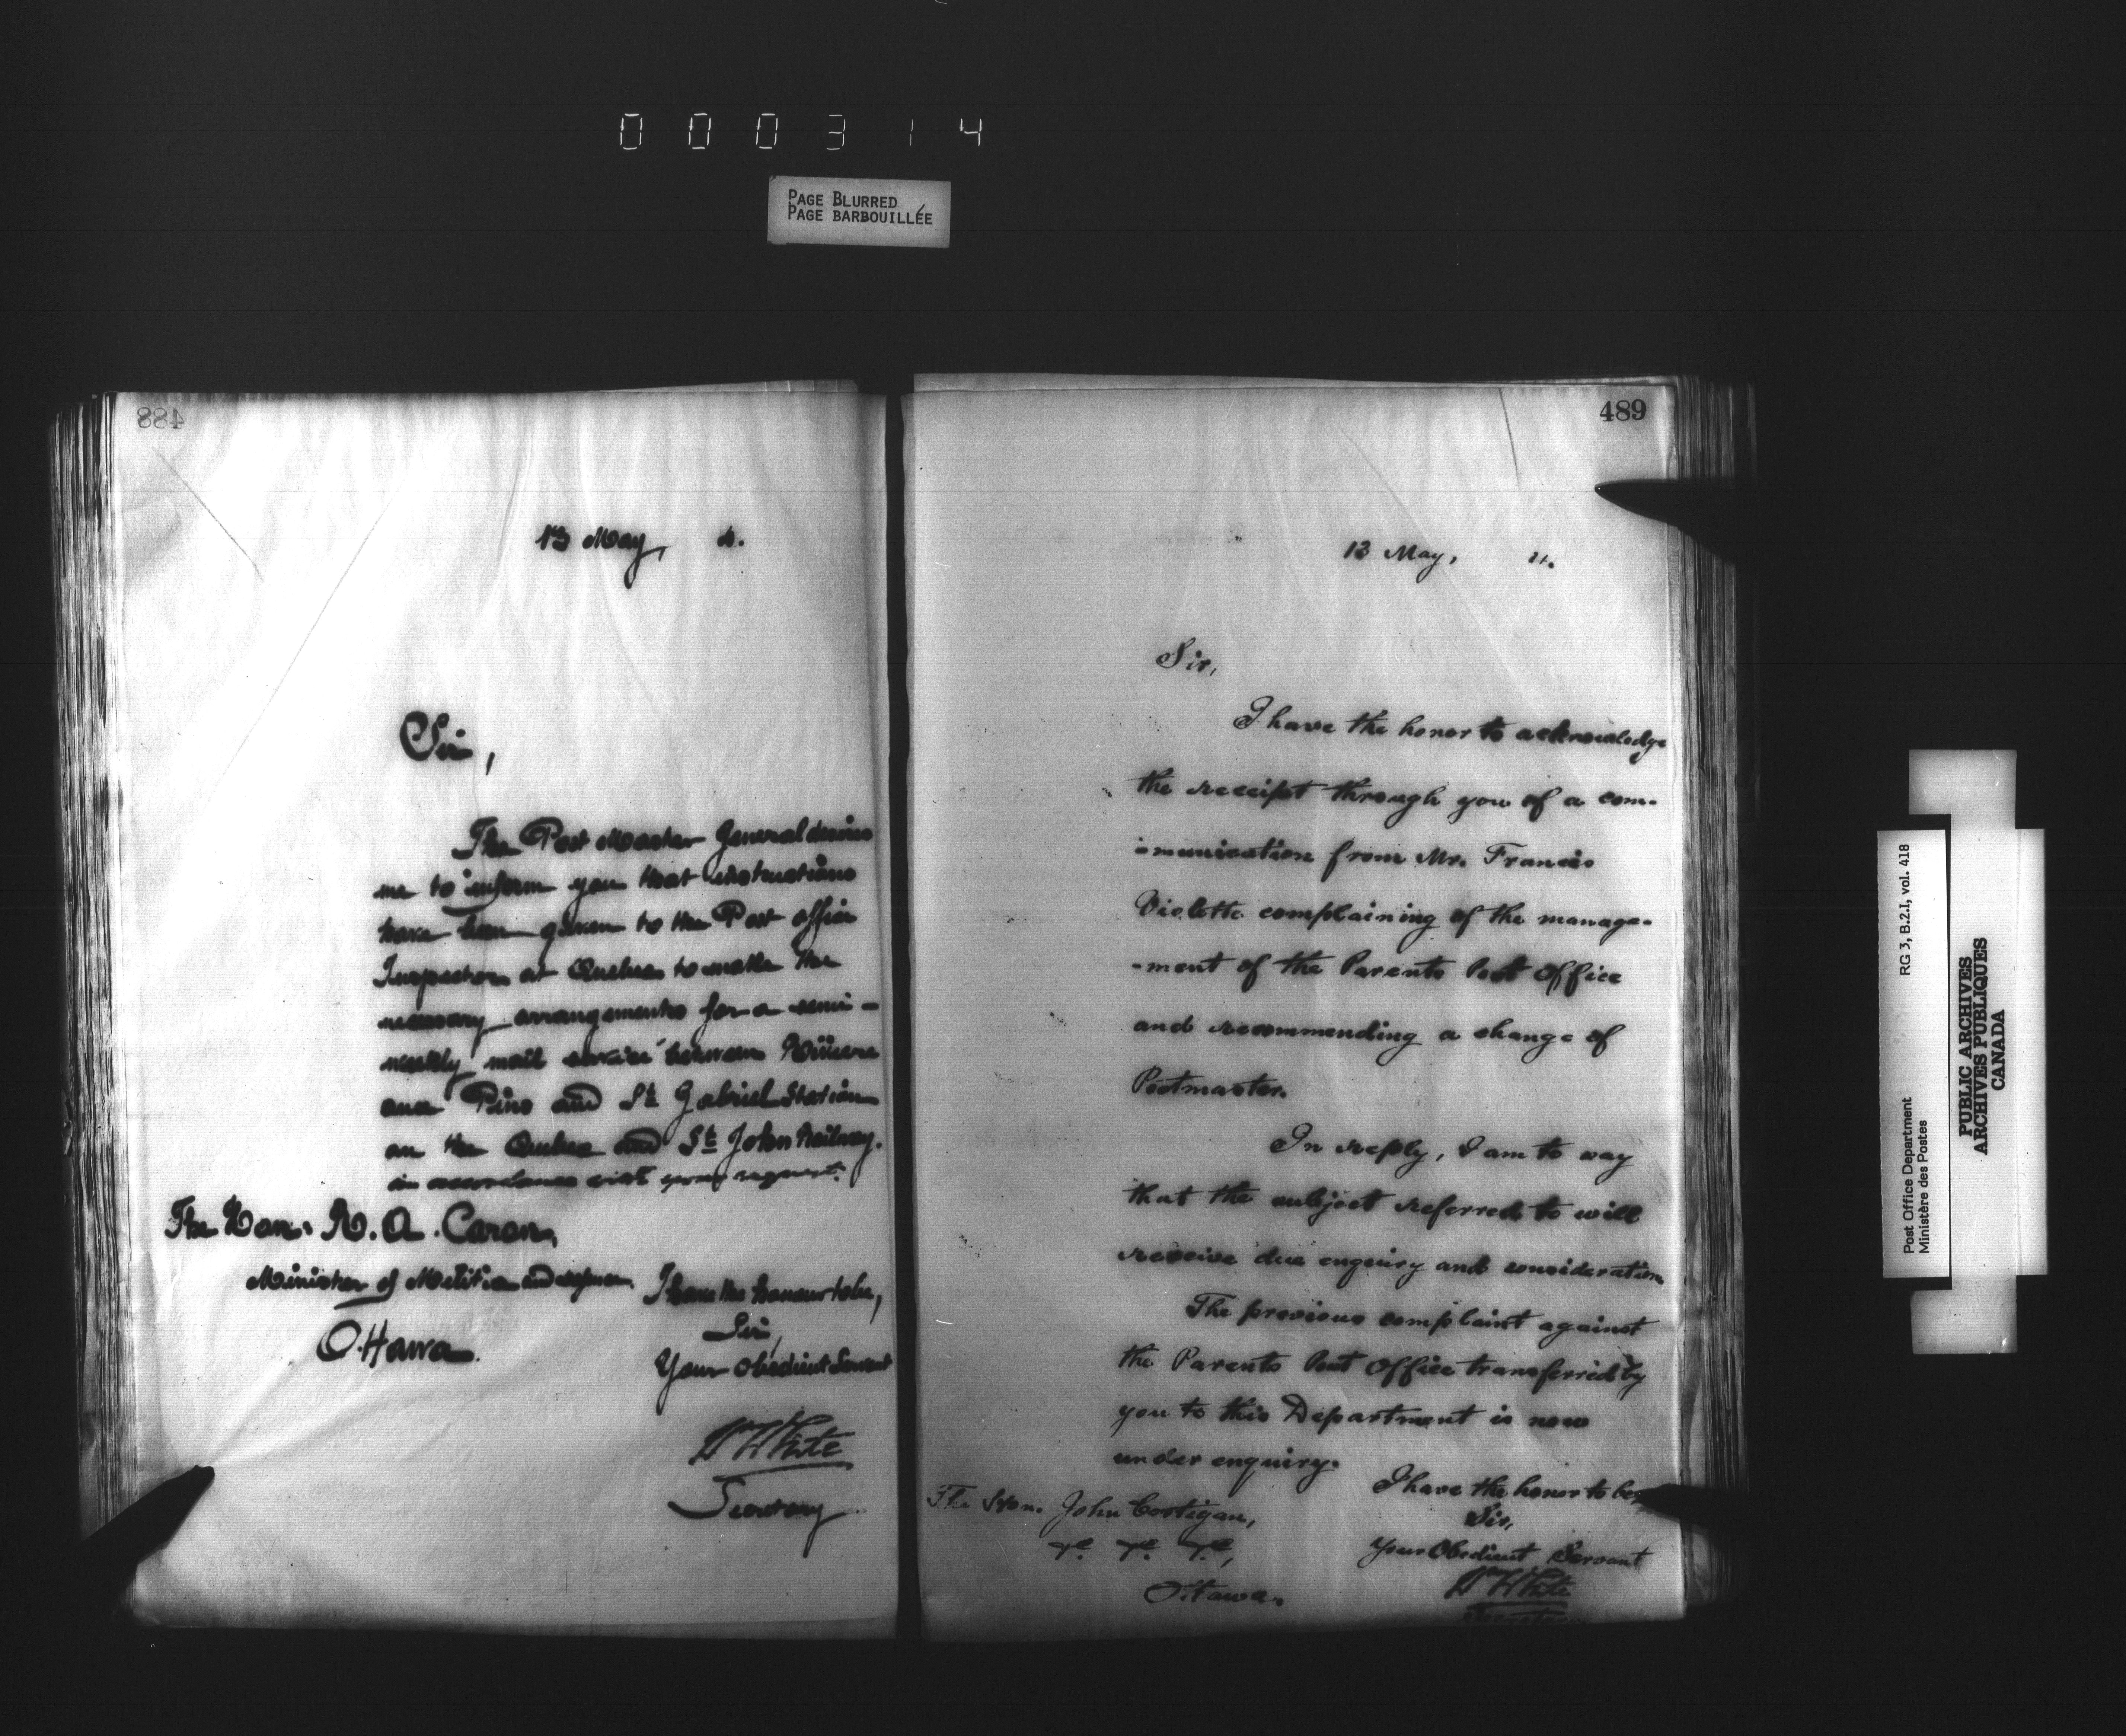 000314
PAGE BLURRED
PAGE BARBOUILLÉE
488
13 May, 4.
Sir,
The Post Master General desires
me to inform you that instructions
have been given to the Post Office
Inspector at Quebec to make the
necessary arrangements for a semi-
weekly mail service between Rivière
aux Pins and St Gabriel Station
on the Quebec and St John Railway.
in accordance with your request.
The Hon. A. Caron,
Minister of Militia and
Ottawa.
I have the honour to be,
Sir,
Your obedient Servant
Wm White
Secretary
489
13 May, 4.
Sir,
I have the honor to acknowledge
the receipt through you of a com-
-munication from Mr. Francis
Violette complaining of the manage-
-ment of the Parents Post Office
and recommending a change of
Postmaster.
In reply, I am to say
that the subject referred to will
receive due enquiry and consideration
The previous complaint against
the Parents Post Office transferred by
you to this Department is now
under enquiry.
I have the honor to be,
Sir,
Your Obedient Servant
Wm White
Secretary
The Hon. John Costigan,
&c. &c. &c.,
Ottawa.
Post Office Department RG 3, B.2.I, vol. 418
Ministère des Postes
PUBLIC ARCHIVES
ARCHIVES PUBLIQUES
CANADA